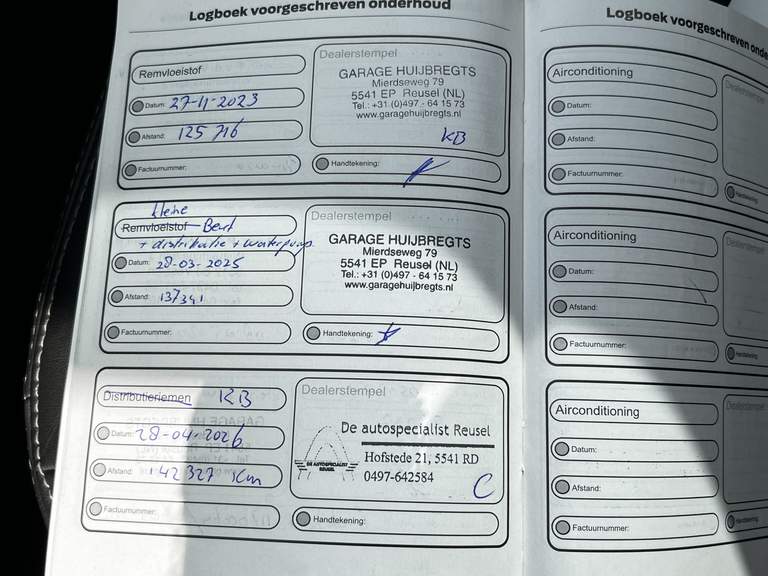 Logboek voorgeschreven onderhoud
Remvloeistof
Datum: 27-11-2023
Afstand: 125 716
Factuurnummer:
Dealerstempel
GARAGE HUIJBREGTS
Mierdseweg 79
5541 EP Reusel (NL)
Tel.: +31 (0)497 - 64 15 73
www.garagehuijbregts.nl
KB
Handtekening:
kleine
Remvloeistof Beurt
+ distributie + waterpomp
Datum: 28-03-2025
Afstand: 137341
Factuurnummer:
Dealerstempel
GARAGE HUIJBREGTS
Mierdseweg 79
5541 EP Reusel (NL)
Tel.: +31 (0)497 - 64 15 73
www.garagehuijbregts.nl
Handtekening:
Distributieriemen KB
Datum: 28-04-2026
Afstand: 142327 Km
Factuurnummer:
Dealerstempel
DE AUTOSPECIALIST
REUSEL
De autospecialist Reusel
Hofstede 21, 5541 RD
0497-642584
C
Handtekening:
Logboek voorgeschreven onde
Airconditioning
Datum:
Afstand:
Factuurnummer:
Dealerstempel
Handtekening:
Airconditioning
Datum:
Afstand:
Factuurnummer:
Dealerstempel
Handtekening:
Airconditioning
Datum:
Afstand:
Factuurnummer:
Dealerstempel
Handtekening: